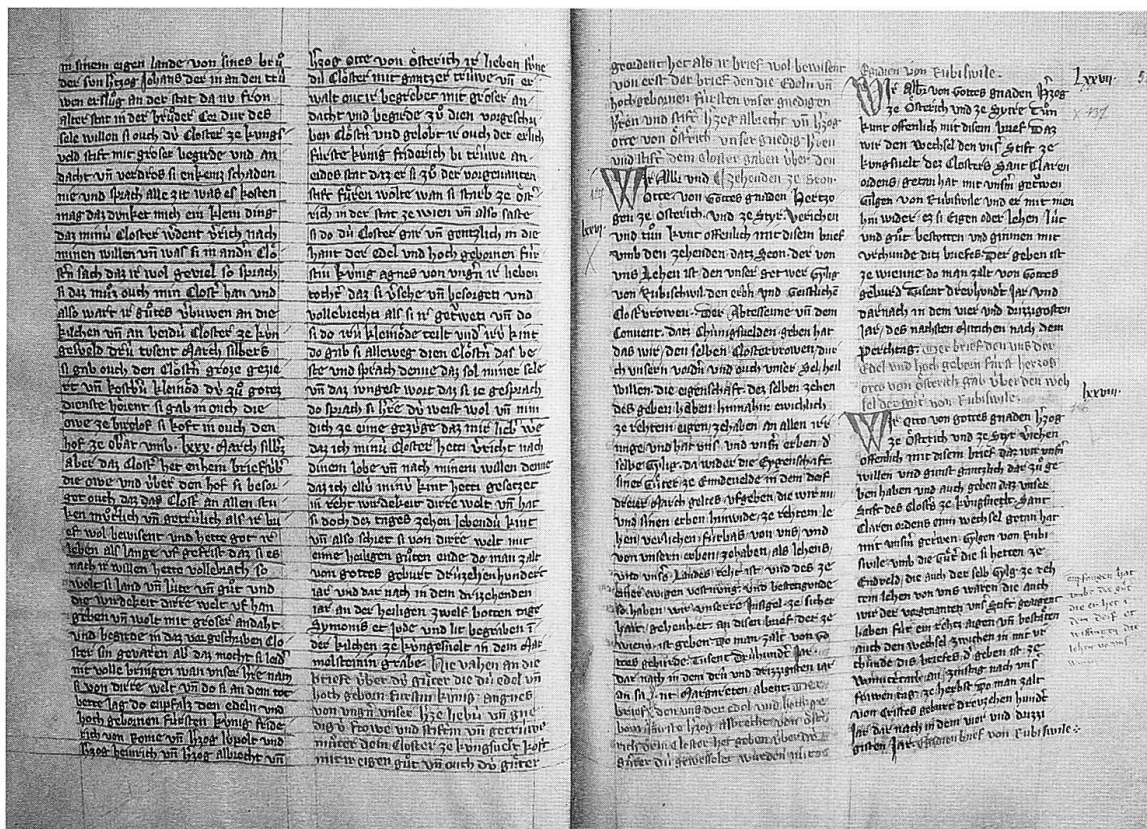 in sinem eigen lande von sines bru
der sun hͤzog Johans der in an den tru
wen erslůg an der stat da nu fron
alter stat in der brůder Cor dur des
sele willen si ouch dů Closter ze kungs
veld stift mit groser begirde und an
dacht vn̄ verdros si enkein schaden
nie und sprach alle zit was es kosten
mag daz dunket mich ein klein ding
daz minů Closter wͤdent vͤrich nach
minen willen vn̄ was si in andͤn Clo
stͤn sach daz ir wol geviel so sprach
si daz můs ouch min Clostͤ han und
also wart ir gůtes vͤbuwen an die
kilchen vn̄ an beidů Closter ze kun
gesveld drů tusent March silbers
si gab ouch den Clostͤn groze gezie
rt vn̄ kostbͤů kleinod dů zů gotez
dienste hörent si gab in ouch die
owe ze birolof si koft in ouch den
hof ze obͤar umb. lxxx. March silbͤz
aber daz Clostͤ het enhein brief vͤbͤ
die owe und vͤber den hof si besor
get ouch daz daz Clostͤ an allen stu
ken
leben als lange vf gefrist daz si es
nach ir willen hette vollebracht so
wolt si land vn̄ lůte vn̄ gůt und
die wirdekeit dirre welt vf han
geben vn̄ wolt mit groser andaht
und begirde in daz vorgeschriben Clo
ster sin gevaren ab daz mocht si laid
nit volle bringen wan unser hͤre nam
si von dirre welt vn̄ do si an dem tot
bette lag do enpfalz den edeln und
hoch gebornen fürsten kunig fride
rich von Rome vn̄ hͤzog lůpolt und
hͤzog heinrich vn̄ hͤzog albrecht vn̄
hͤzog otte von österich ir lieben sůne
dů Closter mit gantzer trůwe vn̄ er
walt ouch ir begrebet mit groser an
dacht und begirde zů dien vorgeschri
ben Clostͤn und gelobt ir ouch der erlich
fürste kunig friderich bi trůwe an
eides stat daz er si zů der vorgenanten
stift fůren wolte wan si starb ze östͤ
rich in der stat ze wien vn̄ also satte
si do dů Closter gar vn̄ gentzlich in die
hant der edel und hoch gebornen für
stin kunig agnes von ungͤn ir lieben
tochtͤ daz si vͤsehe vn̄ besorgeti und
vollebrechti als si ir getweti vn̄ do
si do irů kleinöde teilt und irů kint
do gab si alleweg dien Clostͤn das be
ste und sprach denne daz sol miner sele
vn̄ daz iungest wort daz si ie gesprach
do sprach si hͤre du weist wol vn̄ nim
dich ze eine gezüge daz mir liebͤ we
daz ich minů Closter hetti vͤricht nach
dinem lobe vn̄ nach minem willen denne
daz ich ellů minů kint hetti gesetzet
in reht wirdekeit dirre welt vn̄ hat
si doch dez tages zehen lebendů kint
vn̄ also schiet si von dirre welt mit
eine heiligen gůten ende do man zalt
von gottes geburt drůzehenhundert
iar und dar nach in dem drizehenden
iar an der heiligen zwelf botten tage
Symonis et Jude und lit begraben ī
der kilchen ze kungsvelt in dem mar
molsteinin grabe. Hie vahen an die
briefe vͤber dů gůter die dů edel vn̄
hoch geborn fürstin kunig angnes
von ungͤn unser hͤze liebů vn̄ gne
digů frowe und stifterin vn̄ getrůwe
můter dem Closter ze kungsvelt koft
mit ir eigen gůt vn̄ ouch dů gůter
geordent het als ir brief wol bewisent
von erst der brief den die Edeln vn̄
hochgebornen fürsten unser gnedigen
hͤren und stiftͤ hͤzog albrecht vn̄ hͤzog
otte von östrich unser gnedig hͤren
und stiftͤ dem Closter gaben vber den
zehenden ze Seon.
Wir Albͤ und
Otte von Gottes gnaden Hertzo
gen ze Österich. und ze Styr. Verichen
und tůn kunt offenlich mit disem brief
umb den zehenden. datz Seon. der von
uns Lehen ist den unser getwer Gylg
von Rubischwil. den erbͤn und Geistlichē
Closvrowen. Der Abtessenne vn̄ dem
Convent. datz Chungsvelden geben hat
das wir. den selben Clostervrowen. dur
ch unsern vordͤn und ouch unser Sel heil
willen. die eigenschaft. der selben zehen
des geben haben. hinnahin ewichlich
ze rehtem eigen. zehaben an allen irr
unge und hat uns und unsͤn erben dͤ
selbe Gylig. da wider die Eygenschaft.
siner Gůter ze Eindvelde in dem dorf
dreier March geltes. vfgeben die wir im
und sinen erben hinwide. ze rehtem le
hen verlichen. fürbas von uns und
von unsern erben. zehaben. als lehens.
und unsͤs Landes reht ist. und des ze
einer ewigen vestnung. und bestetgunde
so haben wir unserre Insigel. ze sicher
hait. gehenket. an disen brief. der ze
wienn. ist geben. Do man zalt von Go
ttes gebürde. Tusent Drühundͤt Jar.
dar nach in dem drů und drizzigsten iar
an sant Margareten. abent.
brief den uns der edel und
hͤzog albrecht von östͤ
rich dem Closter het geben vber die
gůter dů gewesselet wurden mit
Egidien von Rubiswile.
Wir Albͤ von Gottes gnaden hͤzog
ze Österich und ze Styre Tůn
kunt offenlich mit disem brief Daz
wir den wechsel den unsͤ Stift ze
kungsvelt dez Closters Sant Claren
ordens. getan hat mit unsͤm getwen
Gilgen von Rubiswile und er mit inen
hin wider. ez si eigen oder lehen. Lůt
und gůt bestetten und gunnen mit
urchunde ditz briefes. Der geben ist
ze wienne do man zalt von Gottes
geburd Tusent Drevhundͤt Jar und
darnach in dem vier und drizzigosten
Jar. des nachsten Mitichen nach dem
perchtag. Der brief den uns der
Edel und hoch geborn fürst herzog
otte von österich gab vber den weh
sel der mit von Rubiswile.
Wir Otto von gottes gnaden hͤzog
ze Österich und ze Styr vͤiehen
offenlich mit disem brief daz wir unsͤn
willen und gunst gantzlich dar zů ge
ben haben und auch geben daz unser
Stift des Clostͤs ze kungsvelt. Sant
Claren ordens einn wechsel getan hat
mit unsͤm getwen. Gylgen von Rubi
swile umb die Gůt die si hetten ze
Endveld. die auch der selb Gylg ze reh
tem lehen von uns
wir der vorgenanten unsͤ Stift geaigent
haben für ein rehts aigen vn̄ bestetten
auch den wechsel zwischen in mit ur
chunde dis briefes. dͤ geben ist ze
an Zinstag nach uns
frowen tag. ze herbst Do man zalt
von Cristes geburt drevzehen hundͤt
Jar dar nach in dem vier und drizzi
gisten Jar. Egidien brief von Rubiswile
lxxvi.
Lxxvii.
lxxviii.
enpfangen hat
umb daz gůt